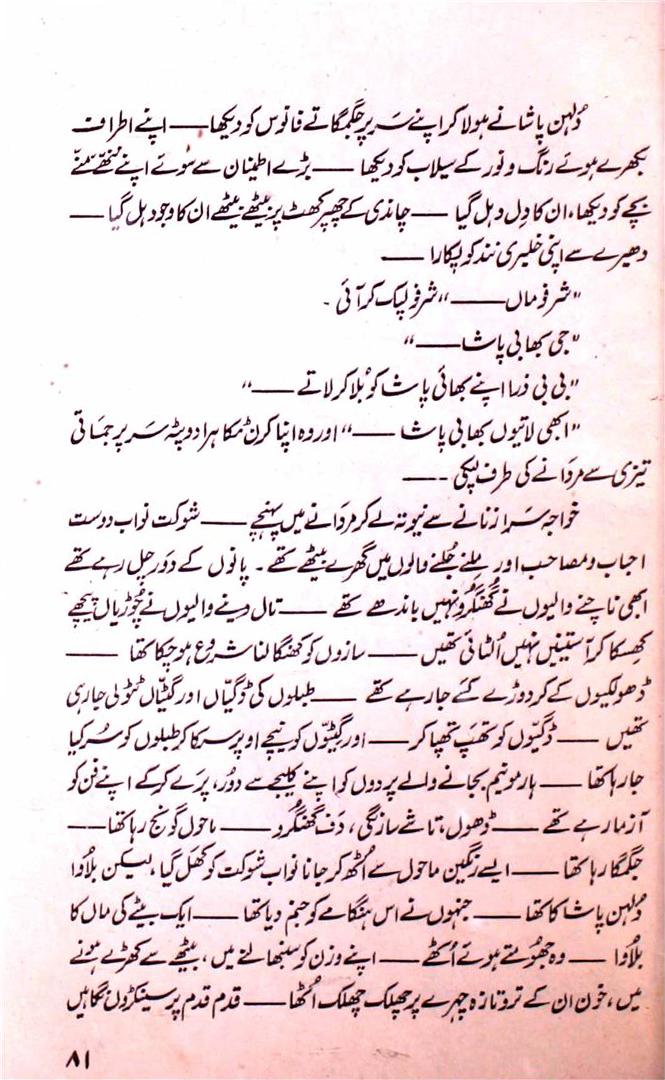 دُلہن پاشا نے ہولا کر اپنے سَر پر جگمگاتے فانوس کو دیکھا —— اپنے اطراف
بکھرے ہوئے رنگ و نور کے سیلاب کو دیکھا —— بڑے اطمینان سے سوئے اپنے ننھے منّے
بچے کو دیکھا، ان کا دِل دہل گیا —— چاندی کے چھپر کھٹ پر بیٹھے بیٹھے ان کا وجود ہل گیا ——
دھیرے سے اپنی خلیری نند کو پکارا ——
"شرفو ماں ——" شرفو لپک کر آئی۔
"جی بھابی پاشا ——"
"بی بی ذرا اپنے بھائی پاشا کو بُلا کر لاتے ——"
"ابھی لاتیوں بھابی پاشا ——" اور وہ اپنا کرن ٹمکا ہرا دوپٹہ سر پر جماتی
تیزی سے مردانے کی طرف لپکی ——
خواجہ سَرا زنانے سے نیوتہ لے کر مردانے میں پہنچے —— شوکت نواب دوست
احباب و مصاحب اور مِلنے جُلنے والوں میں گھرے بیٹھے تھے۔ پانوں کے دَور چل رہے تھے
ابھی ناچنے والیوں نے گھنگرو نہیں باندھے تھے —— تال دینے والیوں نے چوڑیاں پیچھے
کھسکا کر آستینیں نہیں اُلٹائی تھیں —— سازوں کو کھنگالنا شروع ہو چکا تھا ——
ڈھولکیوں کے کَر دوڑے گئے جا رہے تھے —— طبلوں کی ڈگیّاں اور گٹیّاں ٹٹولی جا رہی
تھیں —— ڈگیّوں کو تھپ تھپا کر —— اور گٹیّوں کو نیچے اوپر سرکا کر طبلوں کو سُر کیا
جا رہا تھا —— ہارمونیم بجانے والے پردوں کو اپنے کلیجے سے دوُر، پرَے کر کے اپنے فن کو
آزما رہے تھے —— ڈھول، تاشے سازنگی، دَف گھنگرو —— ماحول گونج رہا تھا ——
جگمگا رہا تھا —— ایسے رنگین ماحول سے اُٹھ کر جانا نواب شوکت کو کَھل گیا، لیکن بلاوا
دُلہن پاشا کا تھا —— جنہوں نے اس ہنگامے کو جنم دیا تھا —— ایک بیٹے کی ماں کا
بُلاوا —— وہ جھُومتے ہوئے اُٹھے —— اپنے وزن کو سنبھالنے میں، بیٹھے سے کھڑے ہونے
میں، خون ان کے تر و تازہ چہرے پر چھلک چھلک اُٹھا —— قدم قدم پر سینکڑوں نگاہیں
۸۱